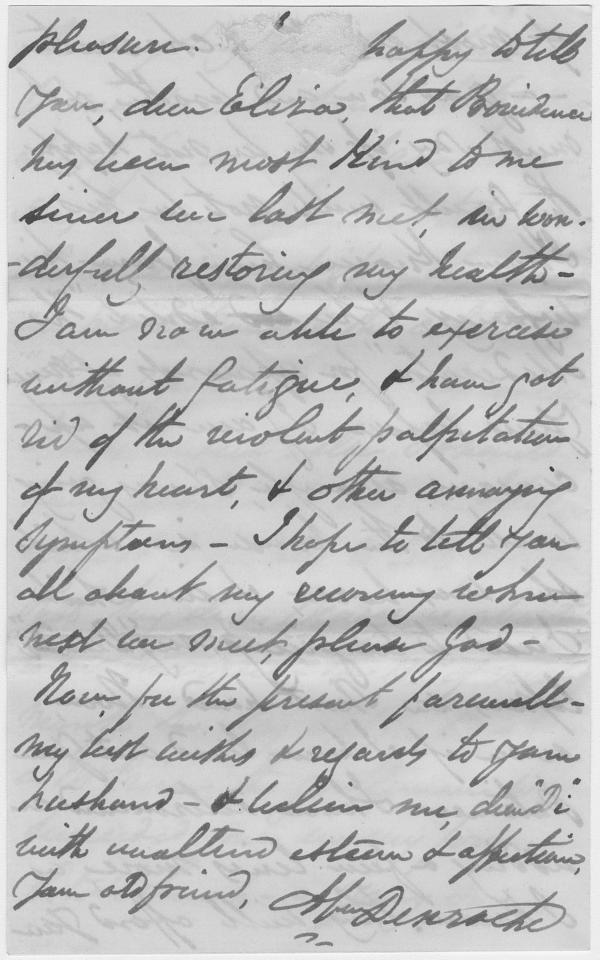 pleasure. happy to tell
you, dear Eliza, that Providence
has been most Kind to me
since we last met, in won-
-derfully restoring my health -
I am now able to exercise
without fatigue, & have got
rid of the violent palpitation
of my heart, & other annoying
symptoms - I hope to tell you
all about my recovery when
next we meet, please God -
Now, for the present farewell -
my best wishes & regards to your
husband - & believe me, dear "Di"
with unaltered esteem & affection,
Your old friend, Denroche